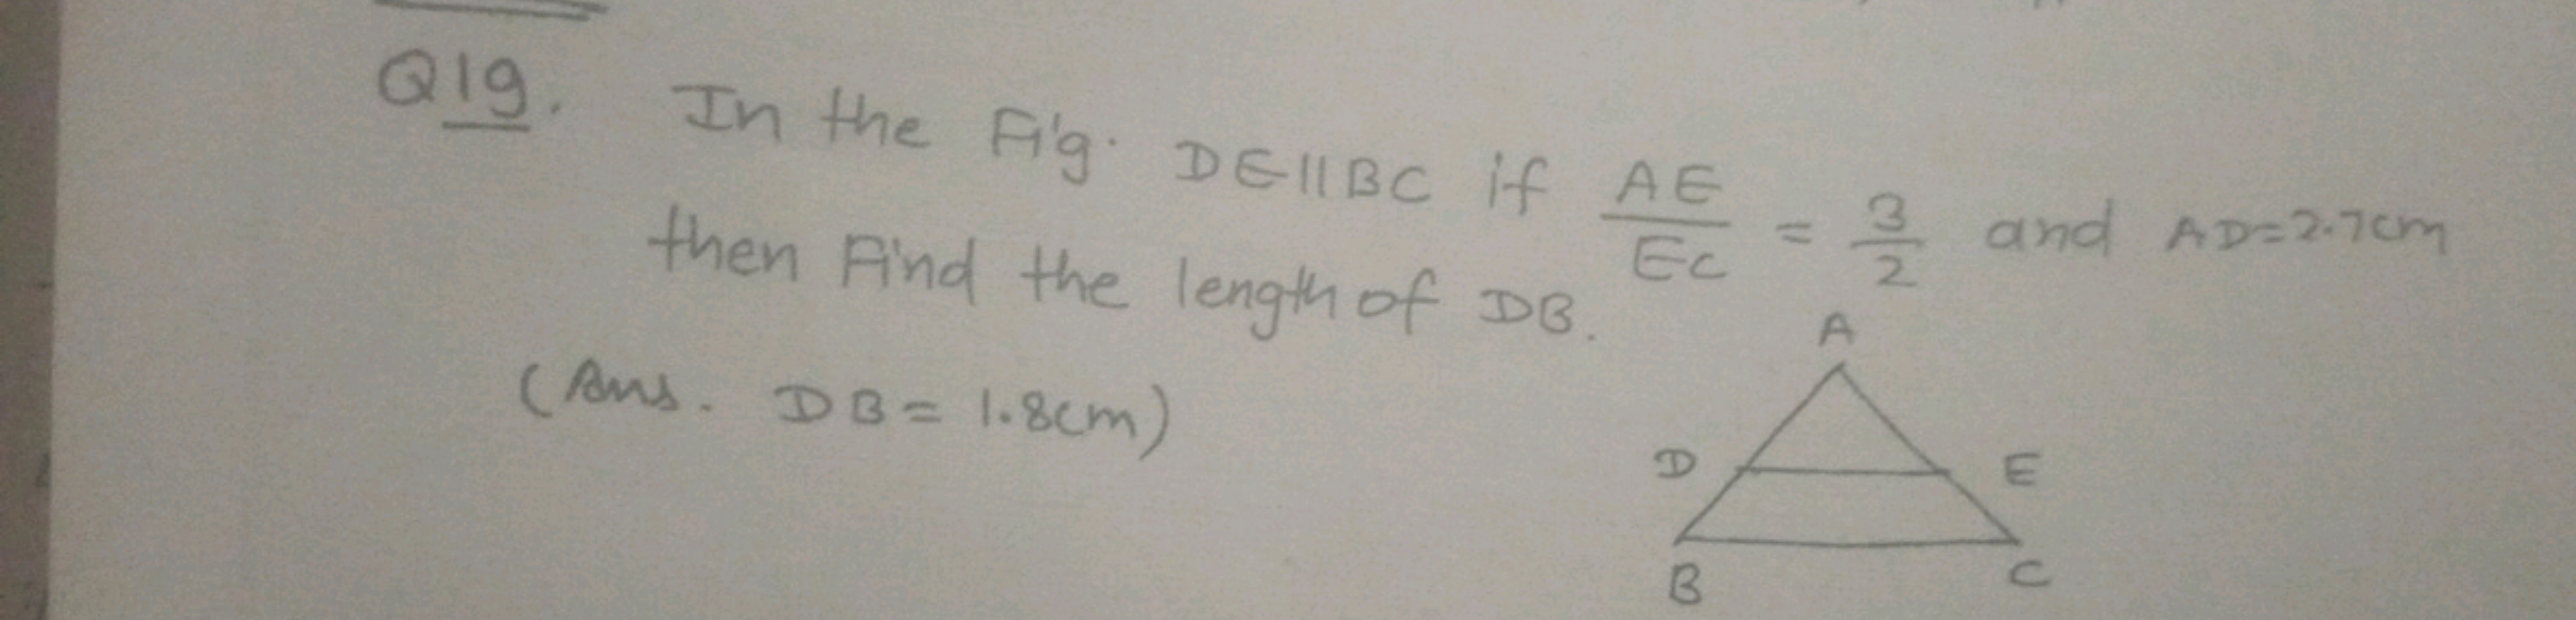 Q19. In the Fig. DE||BC if AE/EC = 3/2 and AD=2.7cm
then Find the length of DB.
(Ans. DB = 1.8cm)
A
D E
B C